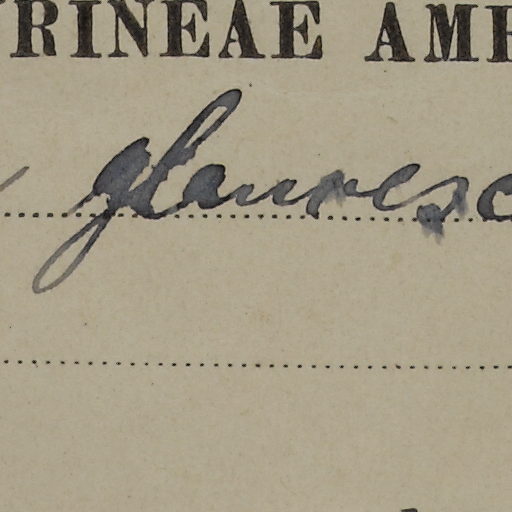 RINEAE AM
glauresc